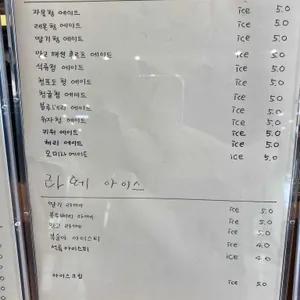 자몽청 에이드 ice 5.0
레몬청 에이드 ice 5.0
딸기청 에이드 ice 5.0
망고 패션 후르츠 에이드 ice 5.0
석류청 에이드 ice 5.0
청포도청 에이드 ice 5.0
청귤청 에이드 ice 5.0
블루베리 에이드 ice 5.0
유자청 에이드 ice 5.0
키위 에이드 ice 5.0
체리 에이드 ice 5.0
오미자에이드 ice 5.0
라떼 아이스
딸기 라떼 ice 5.0
블루베리 라떼 ice 5.0
망고 라떼 ice 5.0
복숭아 아이스티 ice 4.0
석류아이스티 ice 4.0
아이스크림 ice 5.0